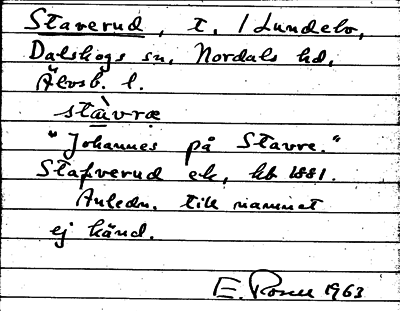 Staverud, t. /Lundebo,
Dalskogs sn, Nordals hd,
Älvsb. l.
stàvræ
"Johannes på Stavre."
Stafverud ek, kb 1881.
Anledn. till namnet
ej känd.
E. Rosell 1963